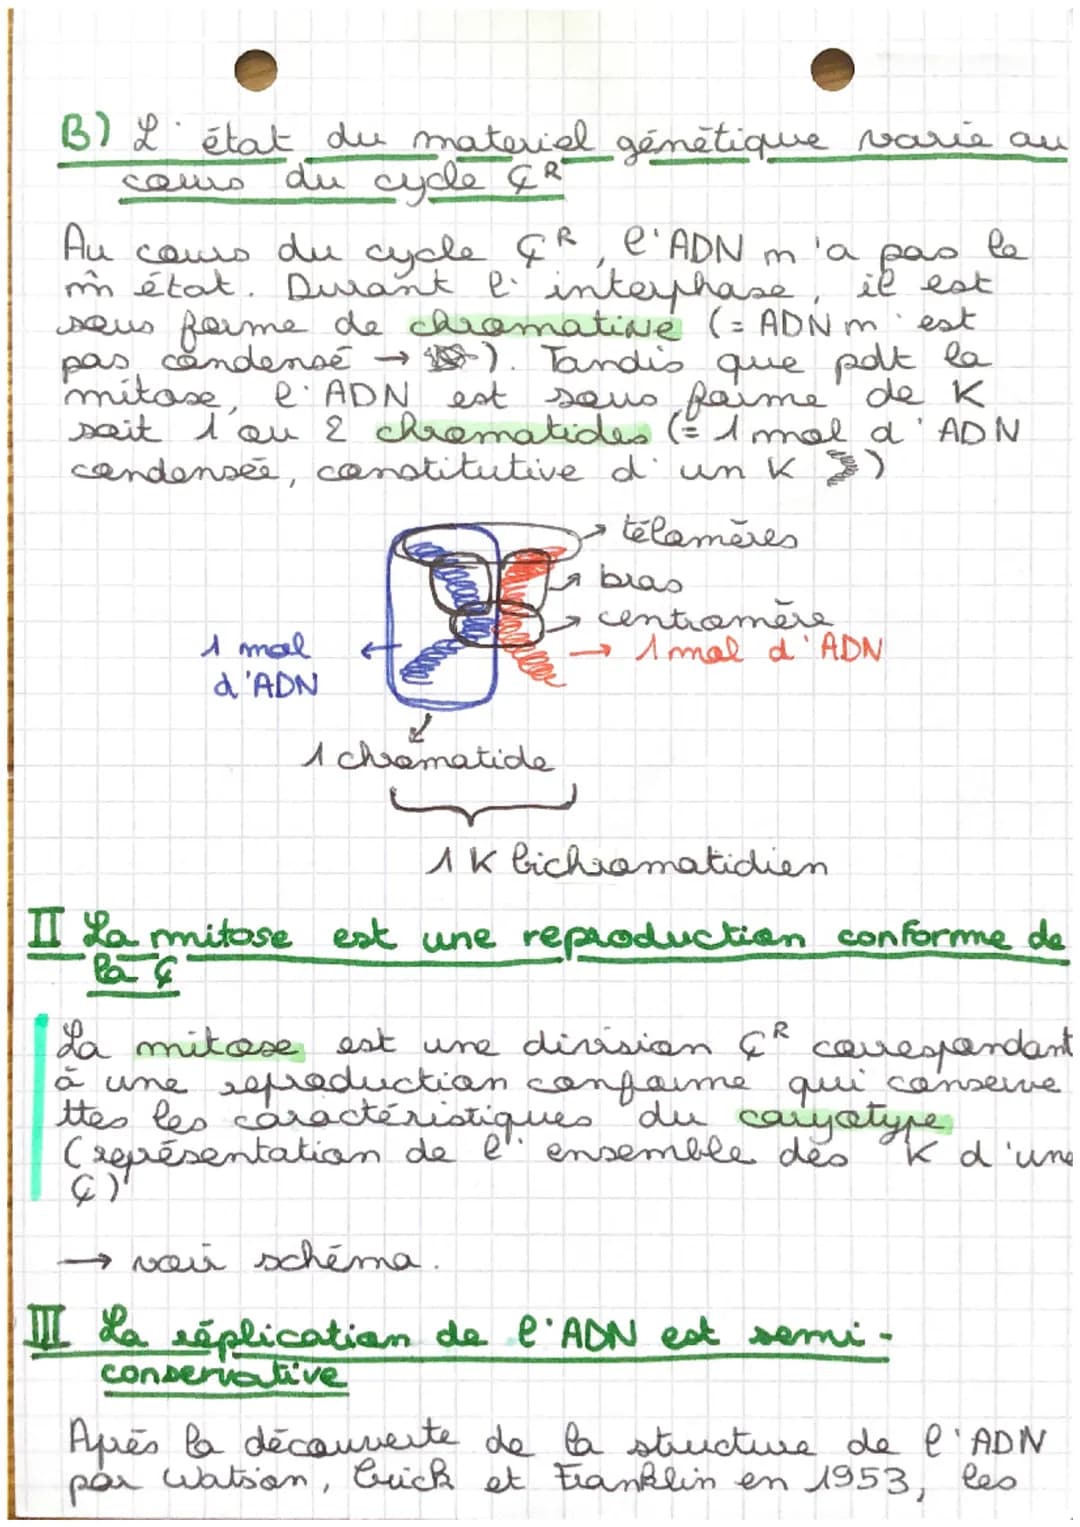 B) L'état du materiel génétique varie au
cours du cycle ȼR
Au cours du cycle ȼR, l'ADN n'a pas le
m̂ état. Durant l'interphase, il est
sous forme de chromatine (= ADN n'est
pas condensé → ). Tandis que pdt la
mitose, l'ADN est sous forme de K
soit 1 ou 2 chromatides (= 1 mol d'ADN
condensée, constitutive d'un K )
télomères
bras
centromère
1 mol
d'ADN
→ 1 mol d'ADN
1 chromatide
1 K bichromatidien
II La mitose est une reproduction conforme de
la ȼ
La mitose est une division ȼR correspondant
à une reproduction conforme qui conserve
ttes les caractéristiques du caryotype
(représentation de l'ensemble des K d'une
ȼ)
→ voir schéma.
III La réplication de l'ADN est semi-
conservative
Après la découverte de la structure de l'ADN
par Watson, Crick et Franklin en 1953, les